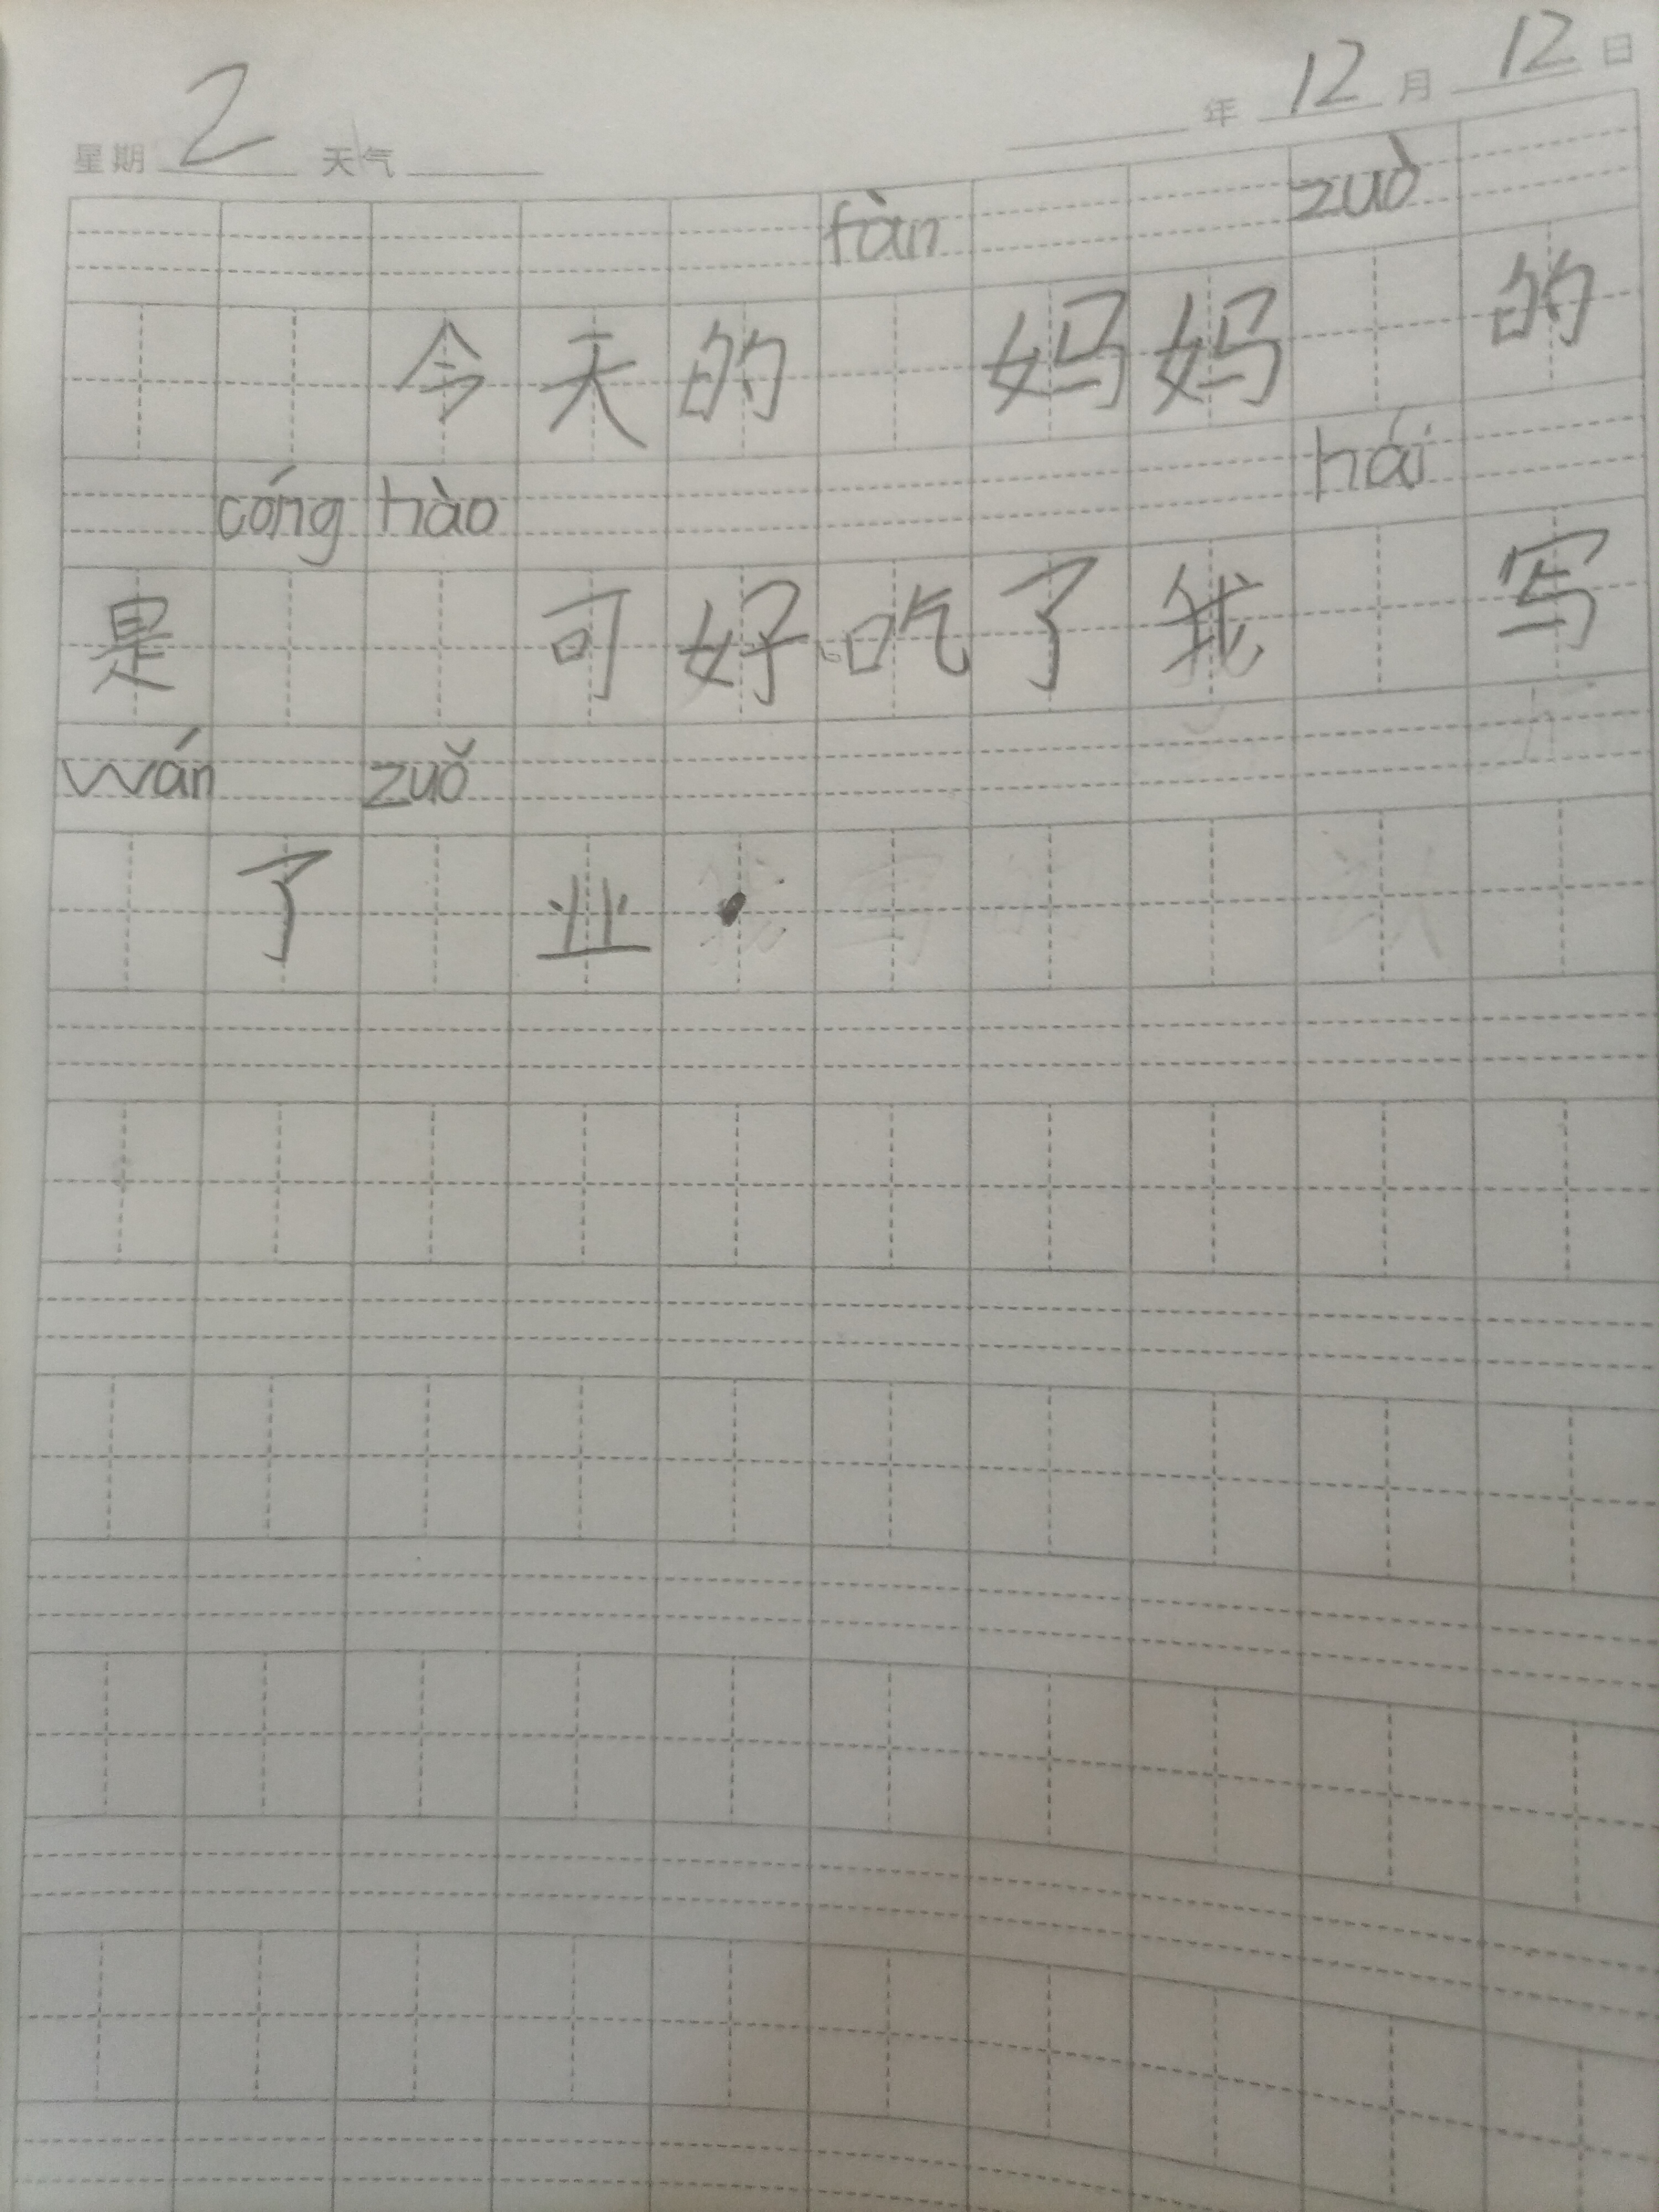 年 12 月 12 日
星期 2 天气
fàn zuò
今天的 妈妈 的
cóng hào hái
是 可好吃了我 写
wán zuǒ
了 业.